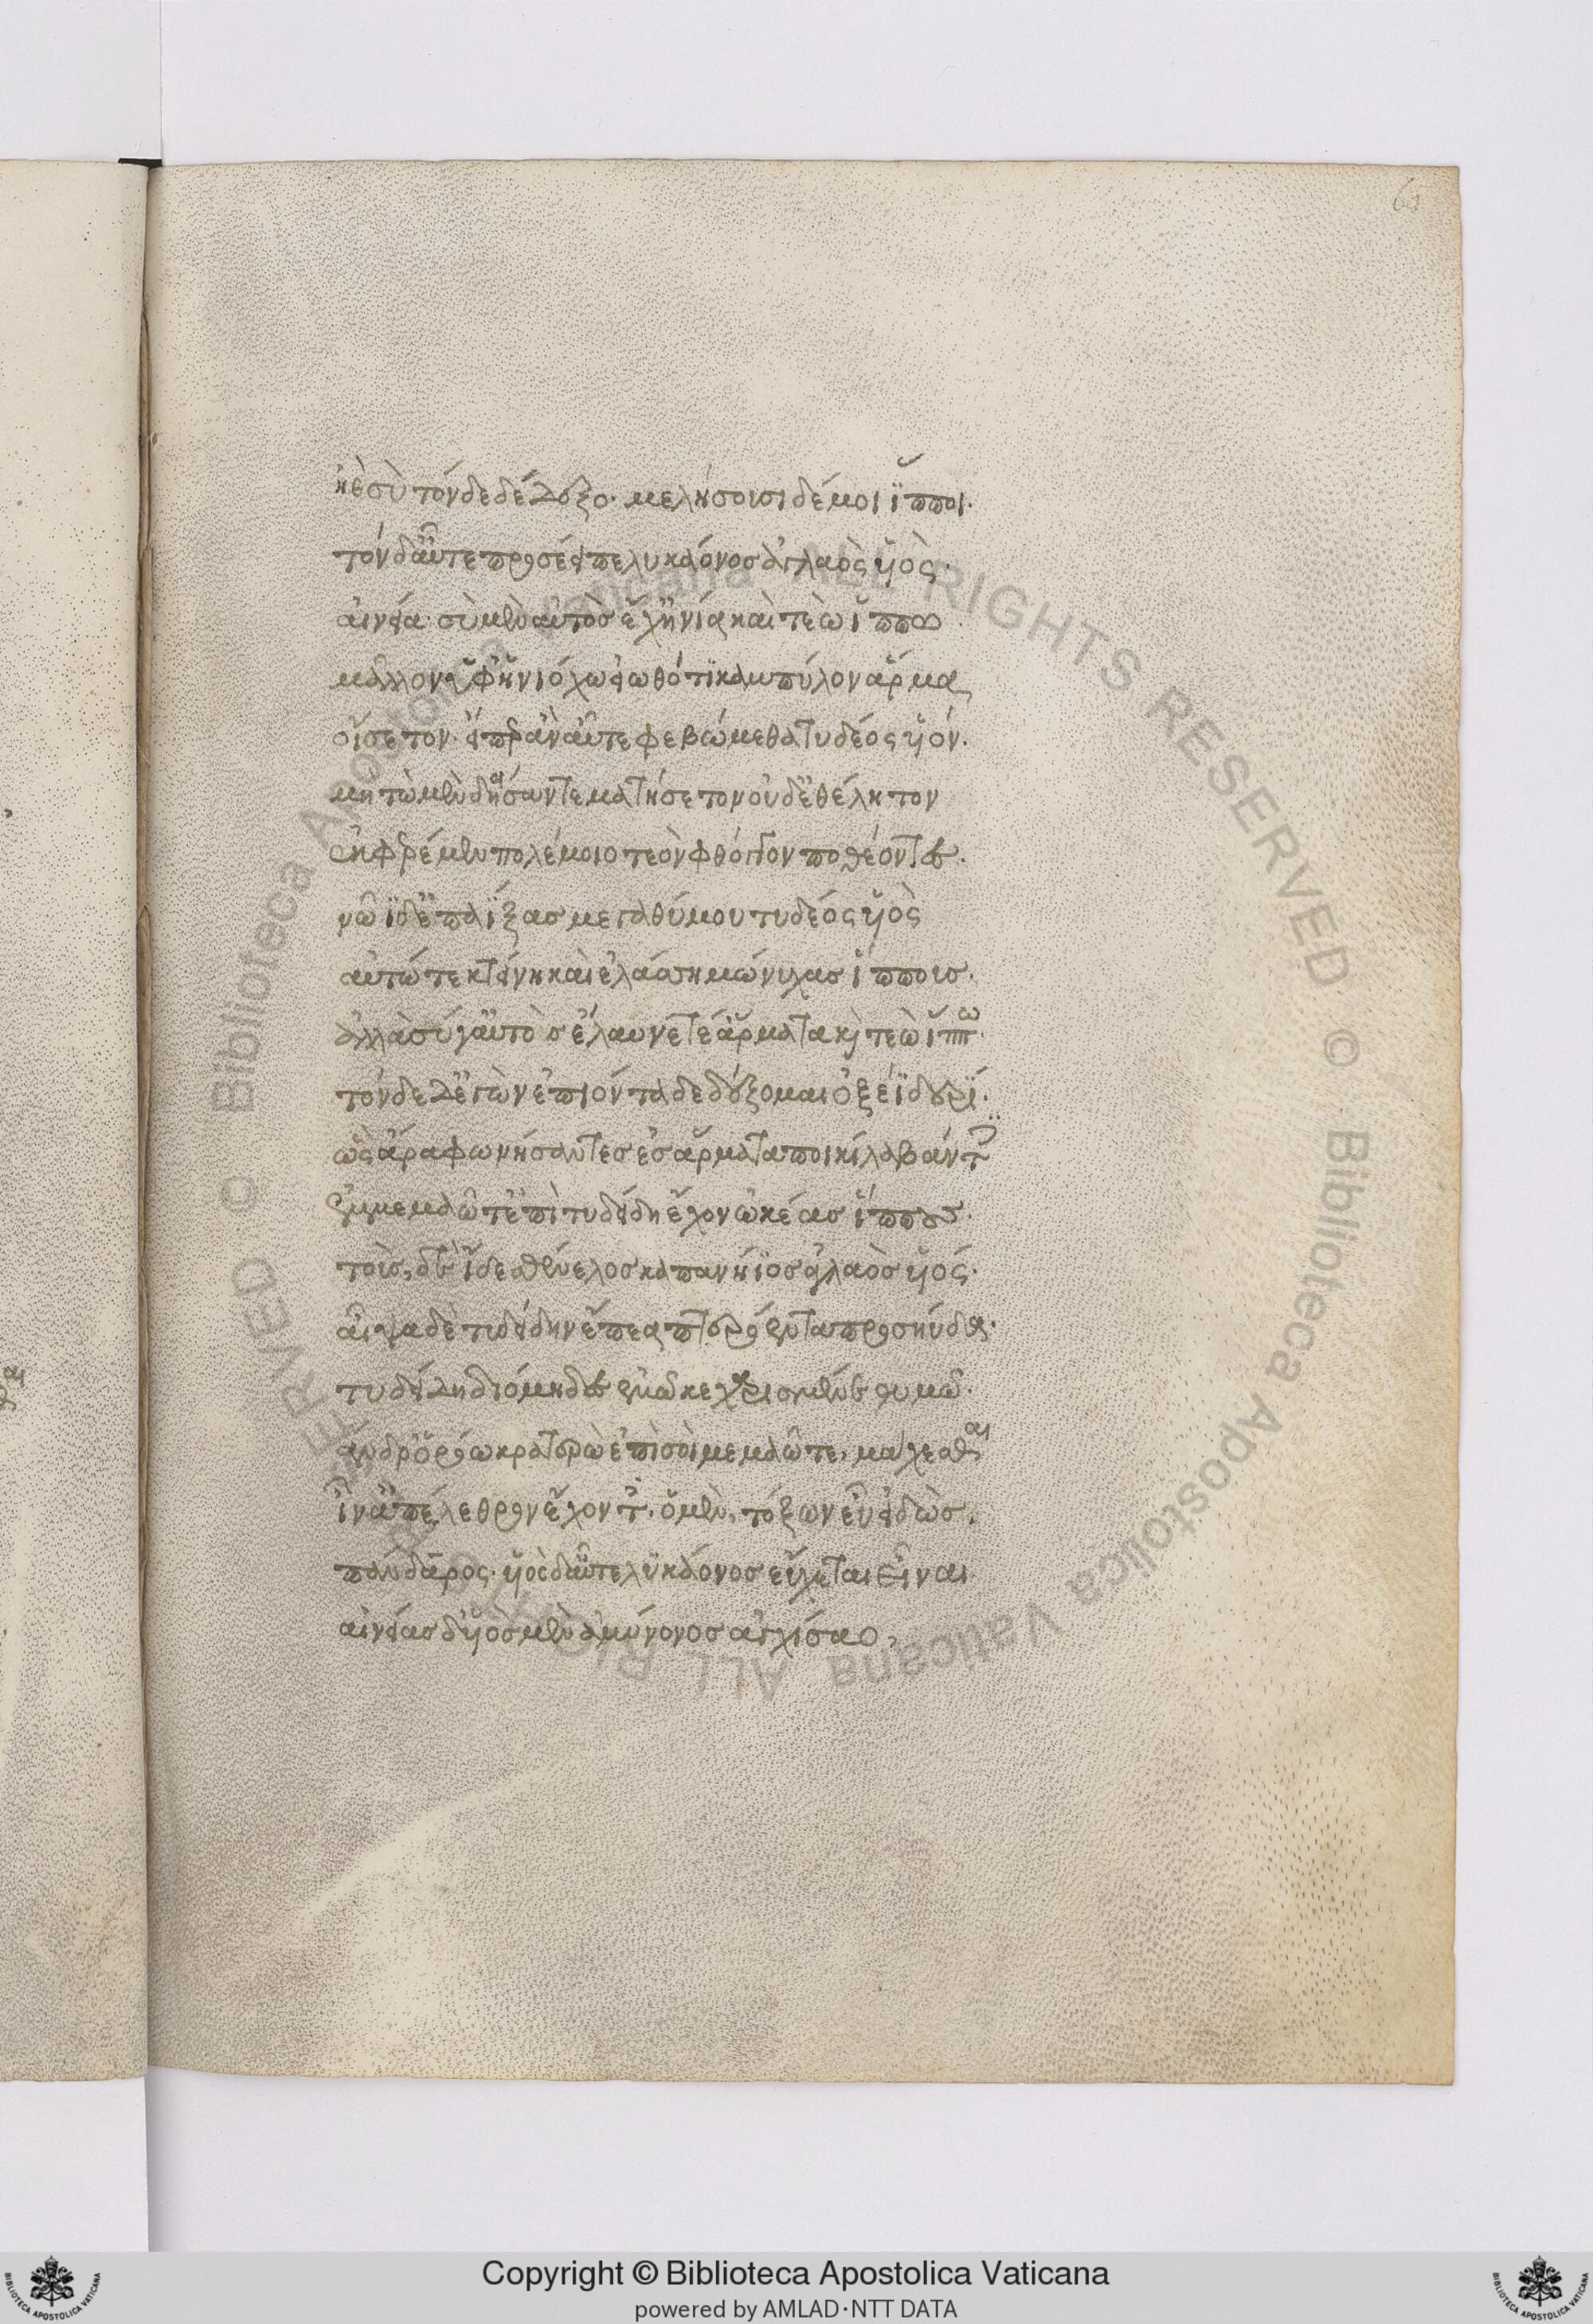 61
ἠὲ σὺ τόνδε δέδεξο· μελήσουσι δέ μοι ἵπποι.
τὸν δ' αὖτε προσέειπε λυκάονος ἀγλαὸς υἱός·
αἰνεία σὺ μὲν αὐτὸς ἔχ' ἡνία καὶ τεὼ ἵππω
μᾶλλον ὑφ' ἡνιόχω εἰωθότι καμπύλον ἅρμα
οἴσετον· εἴπερ ἂν αὖτε φεβώμεθα τυδέος υἱόν.
μὴ τὼ μὲν δείσαντε ματήσετον οὐδ' ἐθέλητον
ἐκφερέμεν πολέμοιο τεὸν φθόγγον ποθέοντες.
νῶϊ δ' ἐπαΐξας μεγαθύμου τυδέος υἱὸς
αὐτώ τε κτείνη καὶ ἐλάσση μώνυχας ἵππους.
ἀλλὰ σύ γ' αὐτὸς ἔλαυνε τέ' ἅρματα καὶ τεὼ ἵππω.
τόνδε δ' ἐγὼν ἐπιόντα δεδέξομαι ὀξέϊ δουρί.
ὣς ἄρα φωνήσαντες ἐς ἅρματα ποικίλα βάντες
ἐμμεμαῶτ' ἐπὶ τυδείδη ἔχον ὠκέας ἵππους.
τοὺς δὲ ἴδε σθένελος καπανήϊος ἀγλαὸς υἱός.
αἶψα δὲ τυδείδην ἔπεα πτερόεντα προσηύδα.
τυδείδη διόμηδες ἐμῶ κεχαρισμένε θυμῶ.
ἄνδρ' ὁρόω κρατερὼ ἐπὶ σοὶ μεμαῶτε μάχεσθαι
ἶν' ἀπέλεθρον ἔχοντας· ὁ μὲν τόξων εὖ εἰδὼς.
πάνδαρος· υἱὸς δ' αὖτε λυκάονος εὔχεται εἶναι
αἰνείας δ' υἱὸς μὲν ἀμύμονος ἀγχίσαο,
Copyright © Biblioteca Apostolica Vaticana
powered by AMLAD·NTT DATA